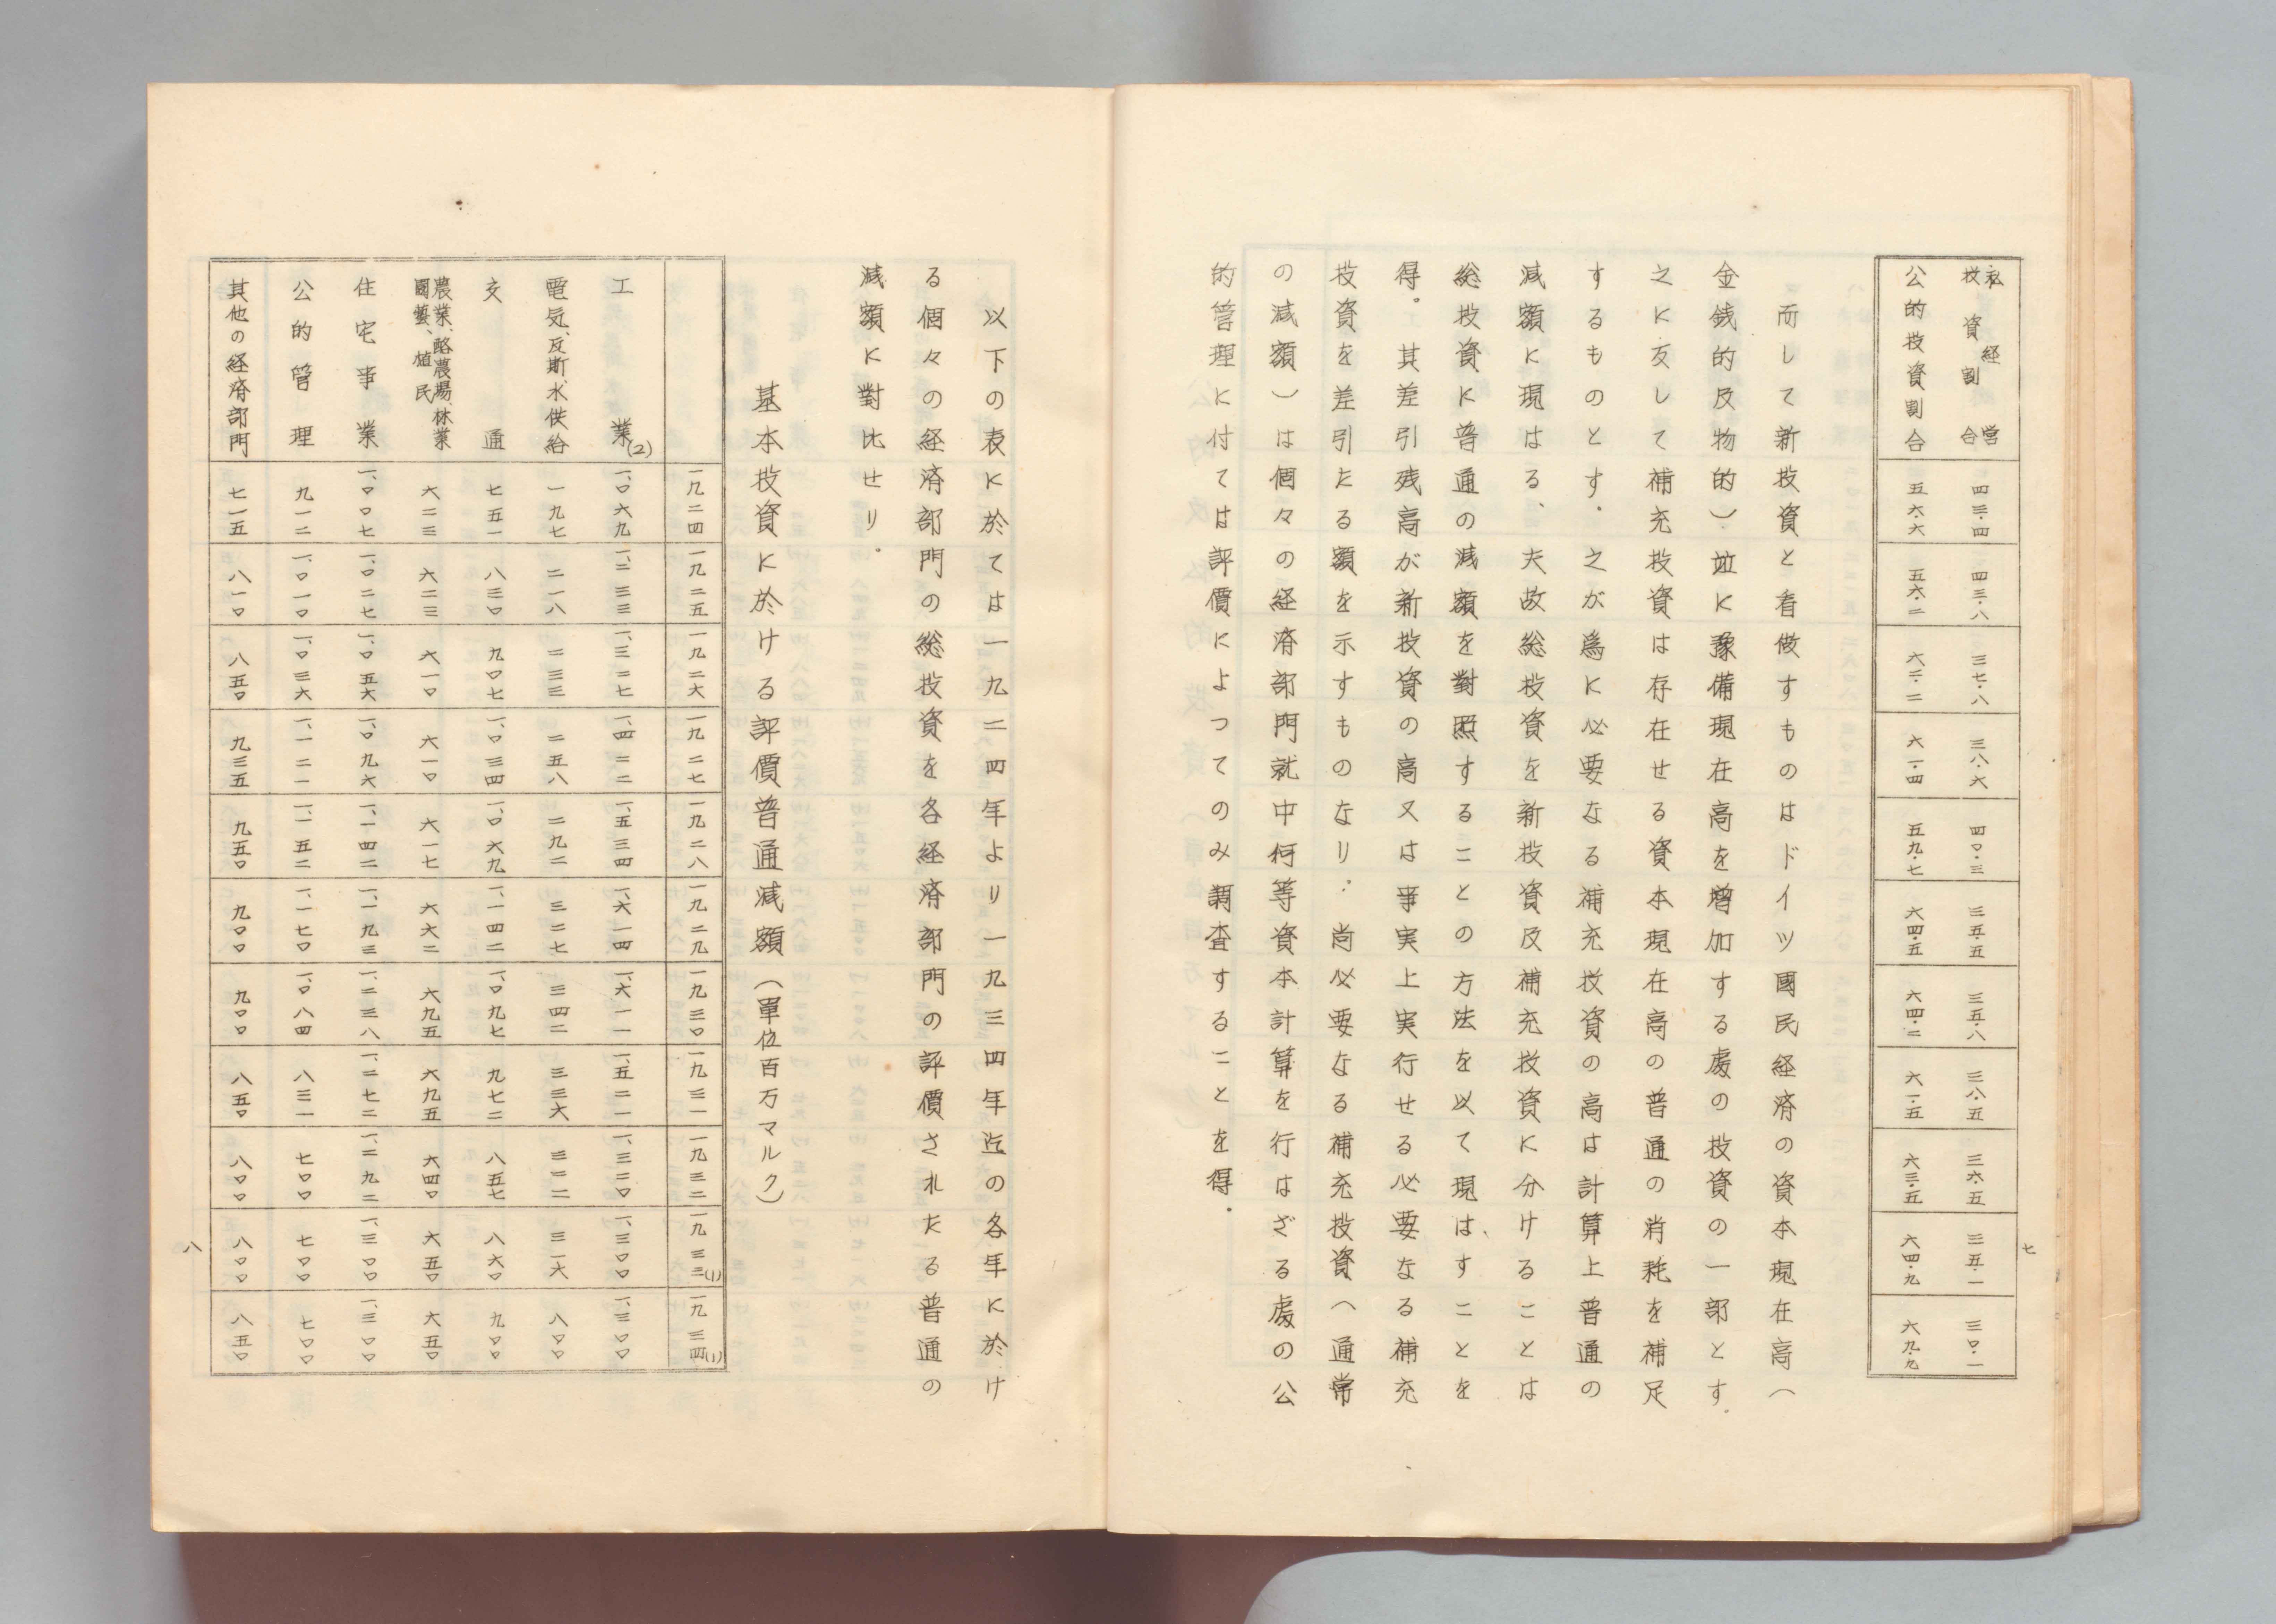 私経営
投資割合 四三・四 四三・八 三七・八 三八・六 四〇・三 三五・五 三五・八 三八・五 三六・五 三五・一 三〇・一
公的投資割合 五六・六 五六・二 六二・二 六一・四 五九・七 六四・五 六四・二 六一・五 六三・五 六四・九 六九・九
七
而して新投資と看做すものはドイツ國民経済の資本現在高（
金銭的反物的）並に豫備現在高を増加する處の投資の一部とす
之に反して補充投資は存在せる資本現在高の普通の消耗を補足
するものとす。之が爲に必要なる補充投資の高は計算上普通の
減額に現はる、夫故総投資を新投資及補充投資に分けることは
総投資に普通の減額を對照することの方法を以て現はすことを
得。其差引残高が新投資の高又は事実上実行せる必要なる補充
投資を差引たる額を示すものなり。尚必要なる補充投資（通常
の減額）は個々の経済部門就中何等資本計算を行はざる處の公
的管理に付ては評價によつてのみ調査することを得。
以下の表に於ては一九二四年より一九三四年迄の各年に於け
る個々の経済部門の総投資を各経済部門の評價されたる普通の
減額に對比せり。
基本投資に於ける評價普通減額（單位百万マルク）
一九二四 一九二五 一九二六 一九二七 一九二八 一九二九 一九三〇 一九三一 一九三二 一九三三(1) 一九三四(1)
工業(2) 一、〇六九 一、二三三 一、三二七 一、四二二 一、五三四 一、六一四 一、六一一 一、五二一 一、三二〇 一、三〇〇 一、三〇〇
電気、瓦斯、水供給 一九七 二一八 二三三 二五八 二九二 三二七 三四二 三三六 三二二 三一六 八〇〇
交通 七五一 八三〇 九〇七 一、〇三四 一、〇六九 一、一四二 一、〇九七 九七二 八五七 八六〇 九〇〇
農業、酪農場、林業
園藝、植民 六二三 六二三 六一〇 六一〇 六一七 六六二 六九五 六九五 六四〇 六五〇 六五〇
住宅事業 一、〇〇七 一、〇二七 一、〇五六 一、〇九六 一、一四二 一、一九三 一、二三八 一、二七二 一、二九二 一、三〇〇 一、三〇〇
公的管理 九一二 一、〇一〇 一、〇三六 一、一二一 一、一五二 一、一七〇 一、〇八四 八三一 七〇〇 七〇〇 七〇〇
其他の経済部門 七一五 八一〇 八五〇 九三五 九五〇 九〇〇 九〇〇 八五〇 八〇〇 八〇〇 八五〇
八